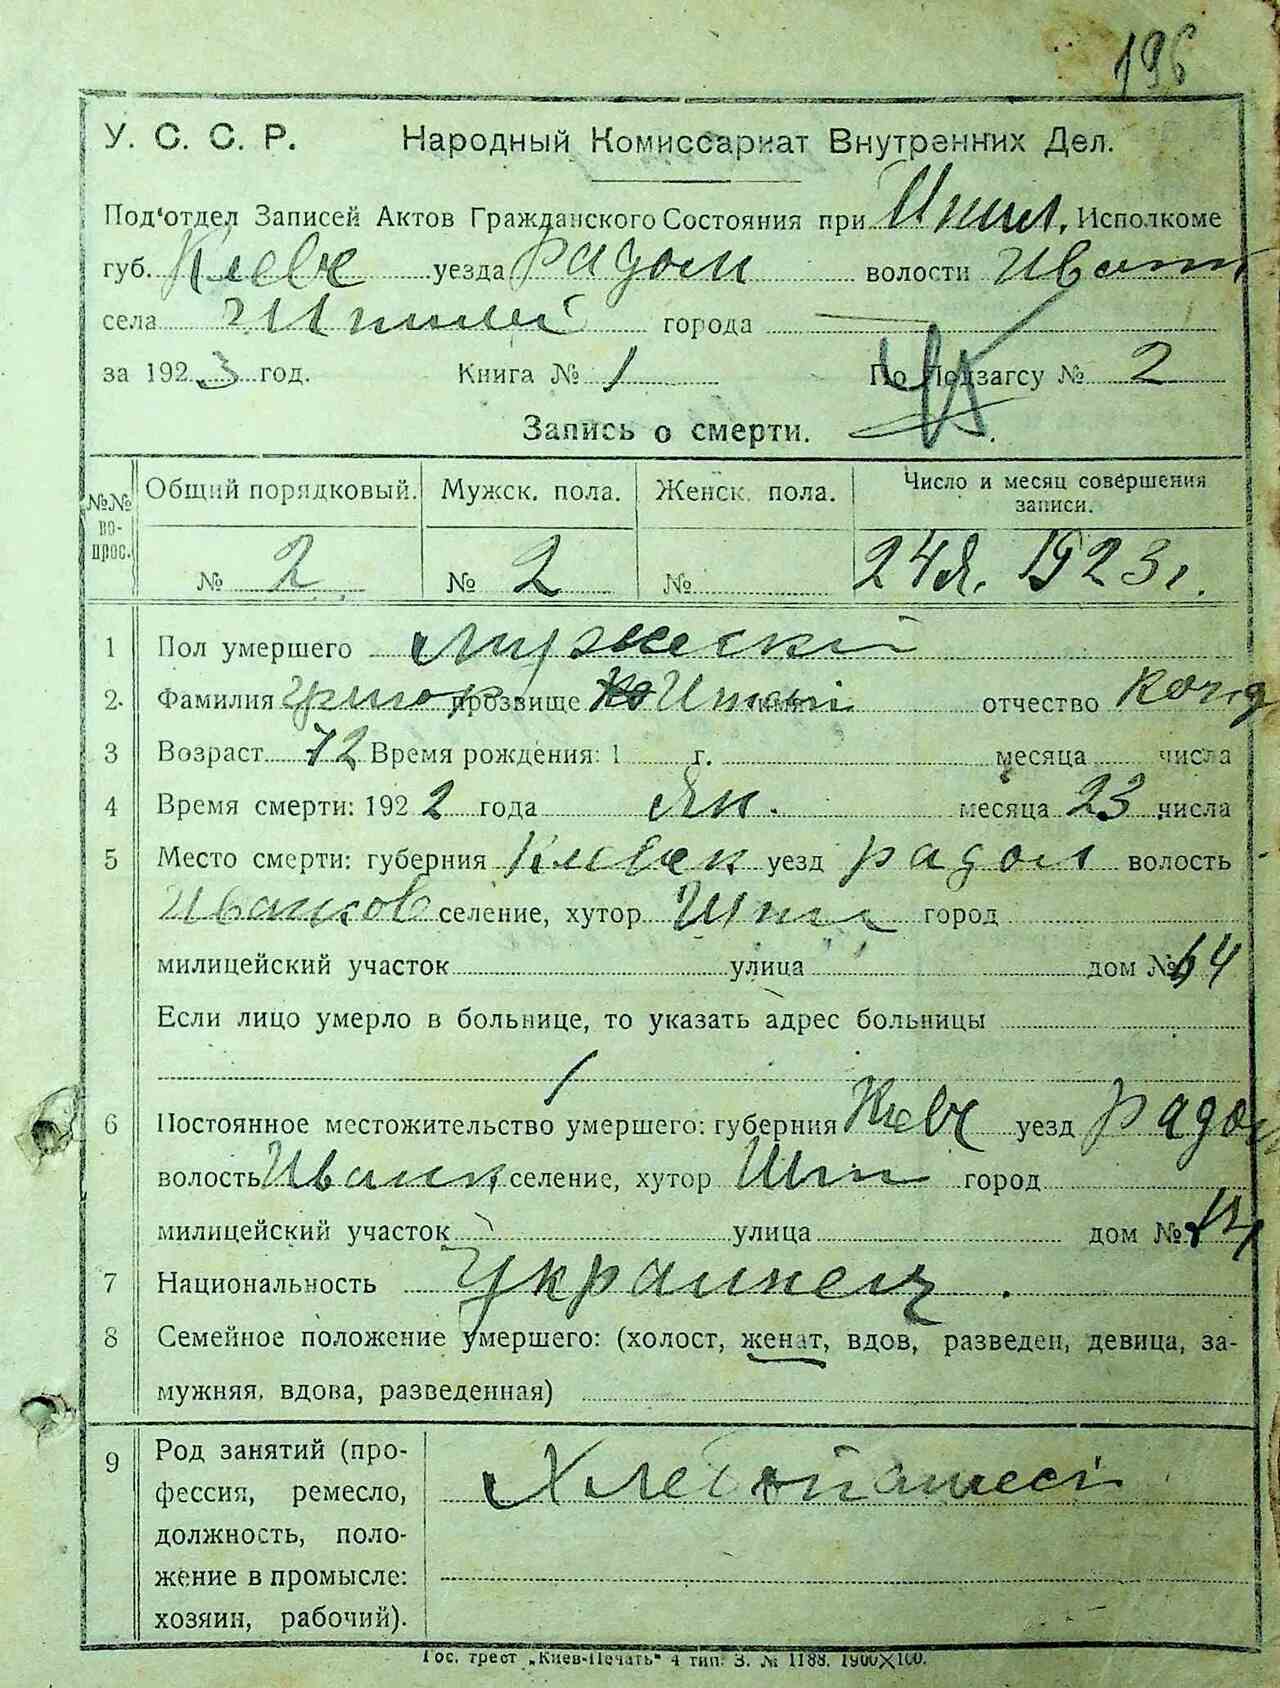 196
У. С. С. Р. Народный Комиссариат Внутренних Дел.
Под'отдел Записей Актов Гражданского Состояния при Шпил. Исполкоме
губ. Киевк уезда Радом волости Иван
села Шпилей города
за 1923 год. Книга № 1 По Подзагсу № 2
Запись о смерти.
№№ вопрос. Общий порядковый. Мужск. пола. Женск. пола. Число и месяц совершения записи.
№ 2 № 2 № 24 Я. 1923 г.
1 Пол умершего Мужескй
2. Фамилия прозвище отчество
3 Возраст 72 Время рождения: 1 г. месяца числа
4 Время смерти: 1922 года Ян. месяца 23 числа
5 Место смерти: губерния Киевск уезд Радом волость
Иванков селение, хутор Шпил город
милицейский участок улица дом № 64
Если лицо умерло в больнице, то указать адрес больницы
6 Постоянное местожительство умершего: губерния Киевк уезд Радом
волость Иванк селение, хутор Шпил город
милицейский участок улица дом №
7 Национальность Украинец.
8 Семейное положение умершего: (холост, женат, вдов, разведен, девица, за-
мужняя, вдова, разведенная)
9 Род занятий (про-
фессия, ремесло,
должность, поло-
жение в промысле:
хозяин, рабочий).
Хлебопашес
Гос. трест „Киев-Печать" 4 тип. З. № 1188. 1900×100.